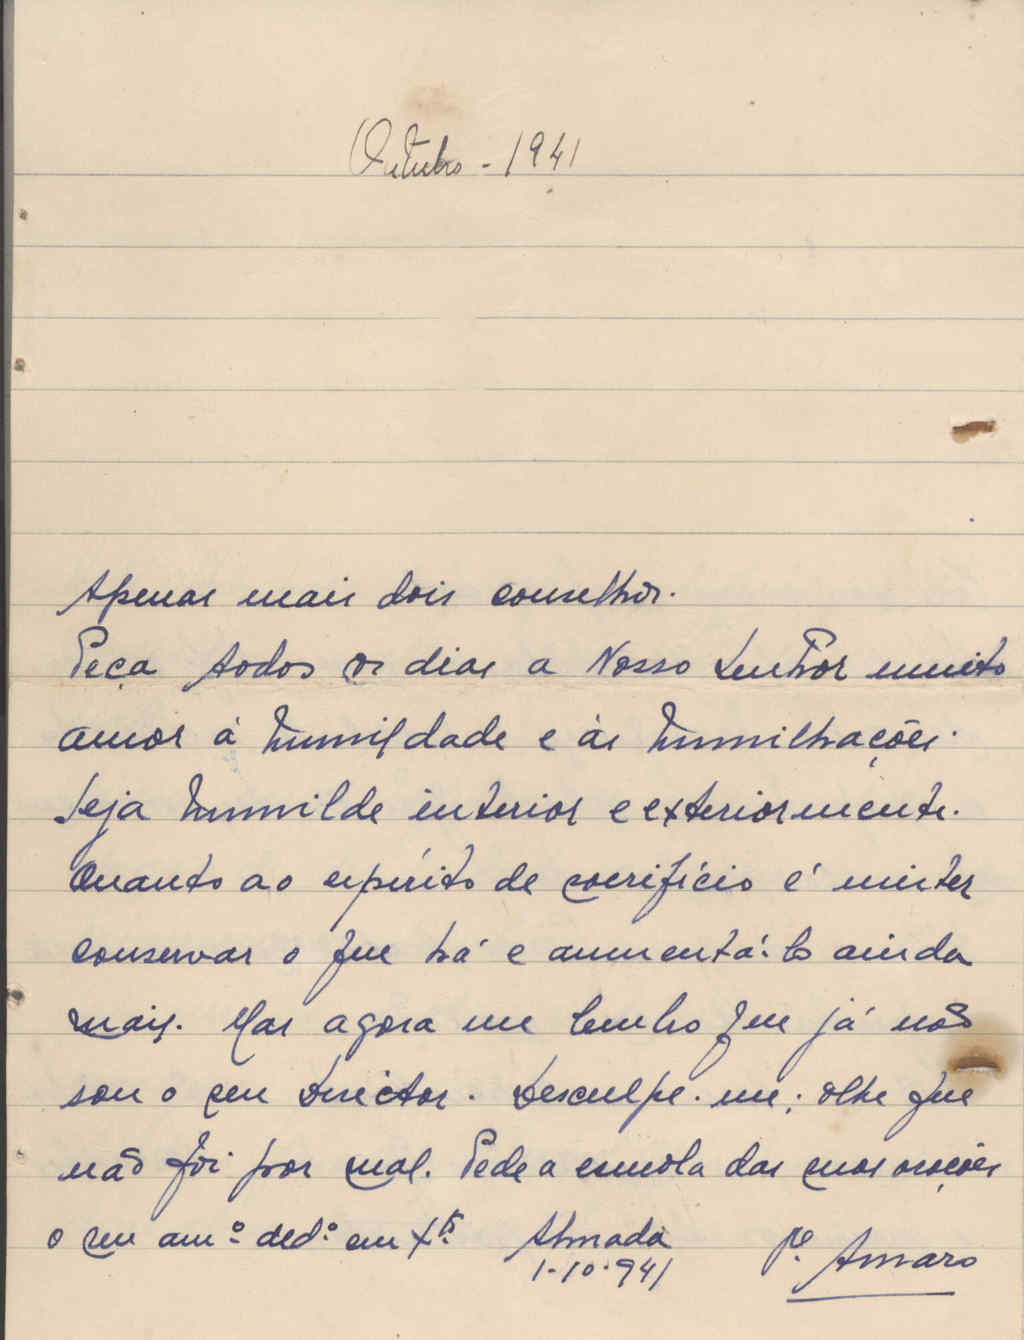 Outubro - 1941
Apenas mais dois conselhos.
Peça todos os dias a Nosso Senhor muito
amor á humildade e ás humilhações.
Seja humilde interior e exteriormente.
Quanto ao espírito de sacrifício é mister
conservar o que há e aumentá-lo ainda
mais. Mas agora me lembro que já não
sou o seu Director. Desculpe-me; olhe que
não foi por mal. Pede a esmola das suas orações
o seu am.º ded.º em Xto. Almada Pe. Amaro
1-10-941